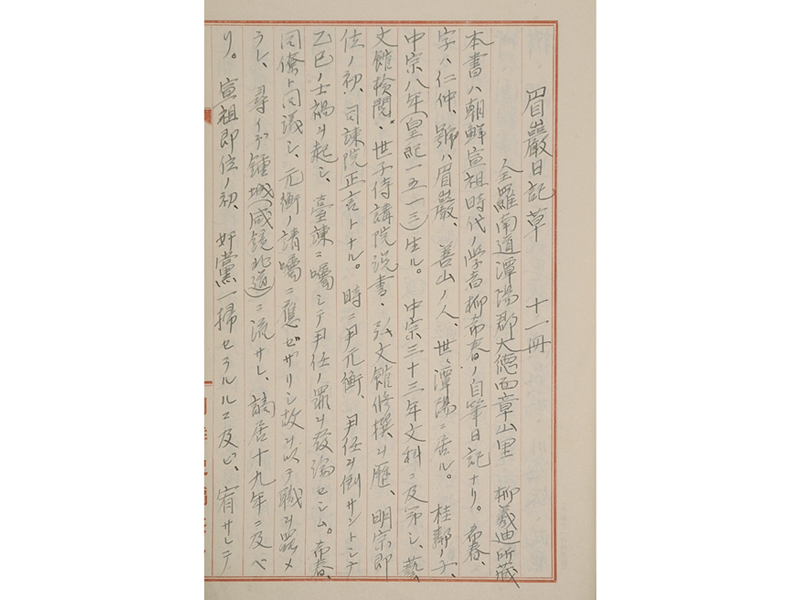 眉巖日記草　十一冊
全羅南道潭陽郡大德面章山里　柳羲迪所藏
本書ハ朝鮮宣祖時代ノ學者柳希春ノ自筆日記ナリ。希春、
字ハ仁仲、號ハ眉巖、善山ノ人、世〻潭陽ニ居ル。桂鄰ノ子、
中宗八年(皇紀一五一三)生ル。中宗三十三年文科ニ及第シ、藝
文館檢閱、世子侍講院説書、弘文館修撰ヲ歷、明宗即
位ノ初、司諫院正言トナル。時ニ尹元衡、尹任ヲ倒サントシテ
乙巳ノ士禍ヲ起シ、臺諫ニ囑シテ尹任ノ罪ヲ發論セシム。希春、
同僚ト同議シ、元衡ノ請囑ニ應ゼザリシ故ヲ以テ職ヲ罷メ
ラレ、尋イデ鍾城(咸鏡北道)ニ流サレ、謫居十九年ニ及ベ
リ。宣祖即位ノ初、奸黨一掃セラルルニ及ビ、宥サレテ